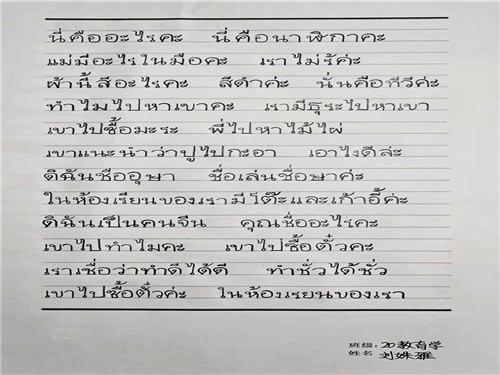 นี่คืออะไรคะ นี่คือนาฬิกาคะ
แม่มีอะไรในมือคะ เราไม่รู้ค่ะ
ผ้านี้สีอะไรคะ สีดำค่ะ นั่นคือทีวีค่ะ
ทำไมไปหาเขาคะ เรามีธุระไปหาเขา
เขาไปซื้อมะระ พี่ไปหาไม้ไผ่
เขาแนะนำว่าปูไปกะอา เอาไงดีล่ะ
ดิฉันชื่ออุษา ชื่อเล่นชื่อษาค่ะ
ในห้องเรียนของเรามีโต๊ะและเก้าอี้ค่ะ
ดิฉันเป็นคนจีน คุณชื่ออะไรคะ
เขาไปทำไมคะ เขาไปซื้อตั๋วคะ
เราเชื่อว่าทำดีได้ดี ทำชั่วได้ชั่ว
เขาไปซื้อตั๋วค่ะ ในห้องเรยนของเรา
班级:20教育学
姓名 刘姝雅